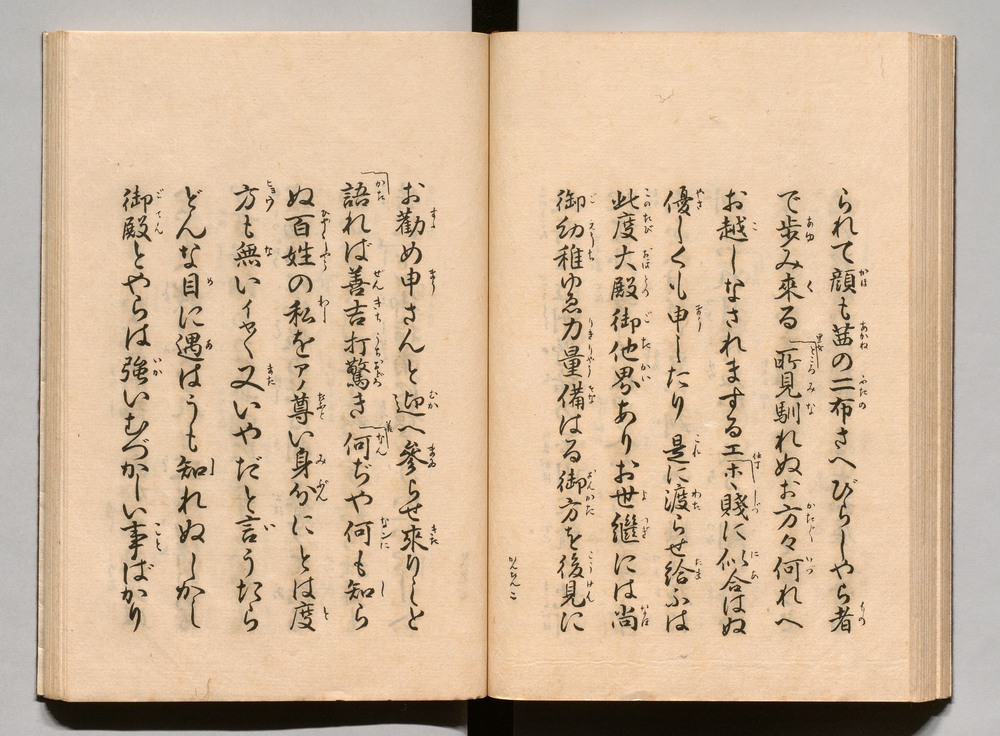 られて顔も茜の二布さへびらしやら者
で歩み來る 所見馴れぬお方々何れへ
お越しなされまするエホヽ賤に似合はぬ
優しくも申したり 是に渡らせ給ふは
此度大殿御他界ありお世繼には尚
御幼稚ゆゑ力量備はる御方を後見に
お勸め申さんと迎へ參らせ來りしと
語れば善吉打驚き 何ぢや何も知ら
ぬ百姓の私をアノ尊い身分にとは度
方も無いイヤ〱又いやだと言うたら
どんな目に遇はうも知れぬしかし
御殿とやらは強いむづかしい事ばかり